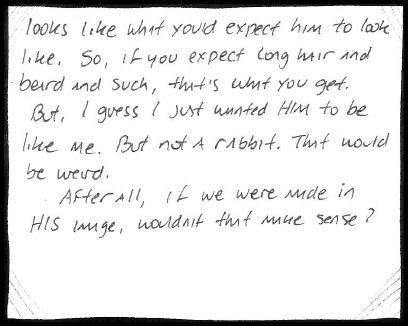 looks like what you'd expect him to look
like. So, if you expect long hair and
beard and such, that's what you get.
But, I guess I just wanted HIM to be
like me. But not a rabbit. That would
be weird.
After all, if we were made in
HIS image, wouldn't that make sense?